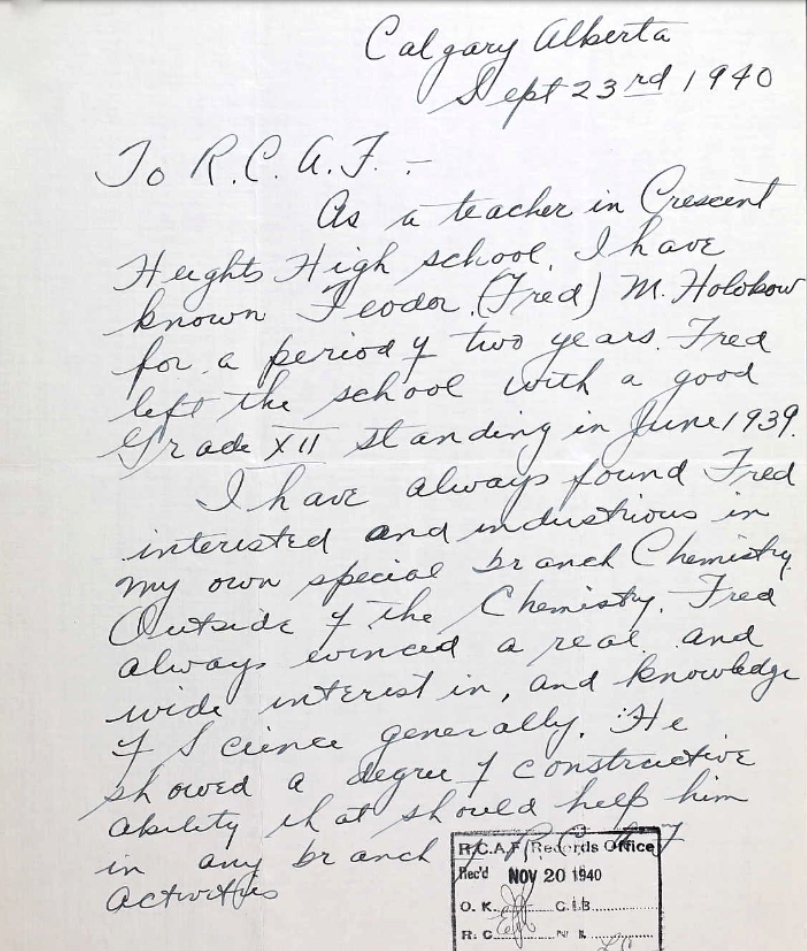 Calgary Alberta
Sept 23rd 1940
To R.C.A.F. –
As a teacher in Crescent
Heights High school, I have
known Feodor (Fred) M. Holobow
for a period of two years. Fred
left the school with a good
Grade XII standing in June 1939.
I have always found Fred
interested and industrious in
my own special branch Chemistry.
Outside of the Chemistry, Fred
always evinced a real and
wide interest in, and knowledge
of Science generally. He
showed a degree of constructive
ability that should help him
in any branch of R.C.A.F
activities
R.C.A.F. Records Office
Rec'd NOV 20 1940
O.K. C.I.B.
R.C. N.I.